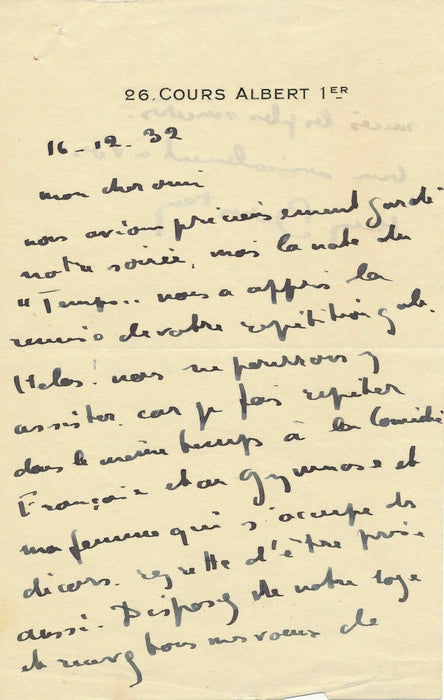 26, COURS ALBERT 1ER
16-12-32
mon cher ami
nous avions précieusement gardé
notre soirée, mais la note du
"Temps" nous a appris la
remise de votre répétition gale.
Helas! nous ne pourrons y
assister car je fais repéter
dans le même temps à la Comédie
Française et au Gymnase et
ma femme qui s'occupe des
décors regrette d'être prise
aussi. Disposez de notre loge
et recevez tous mes voeux de